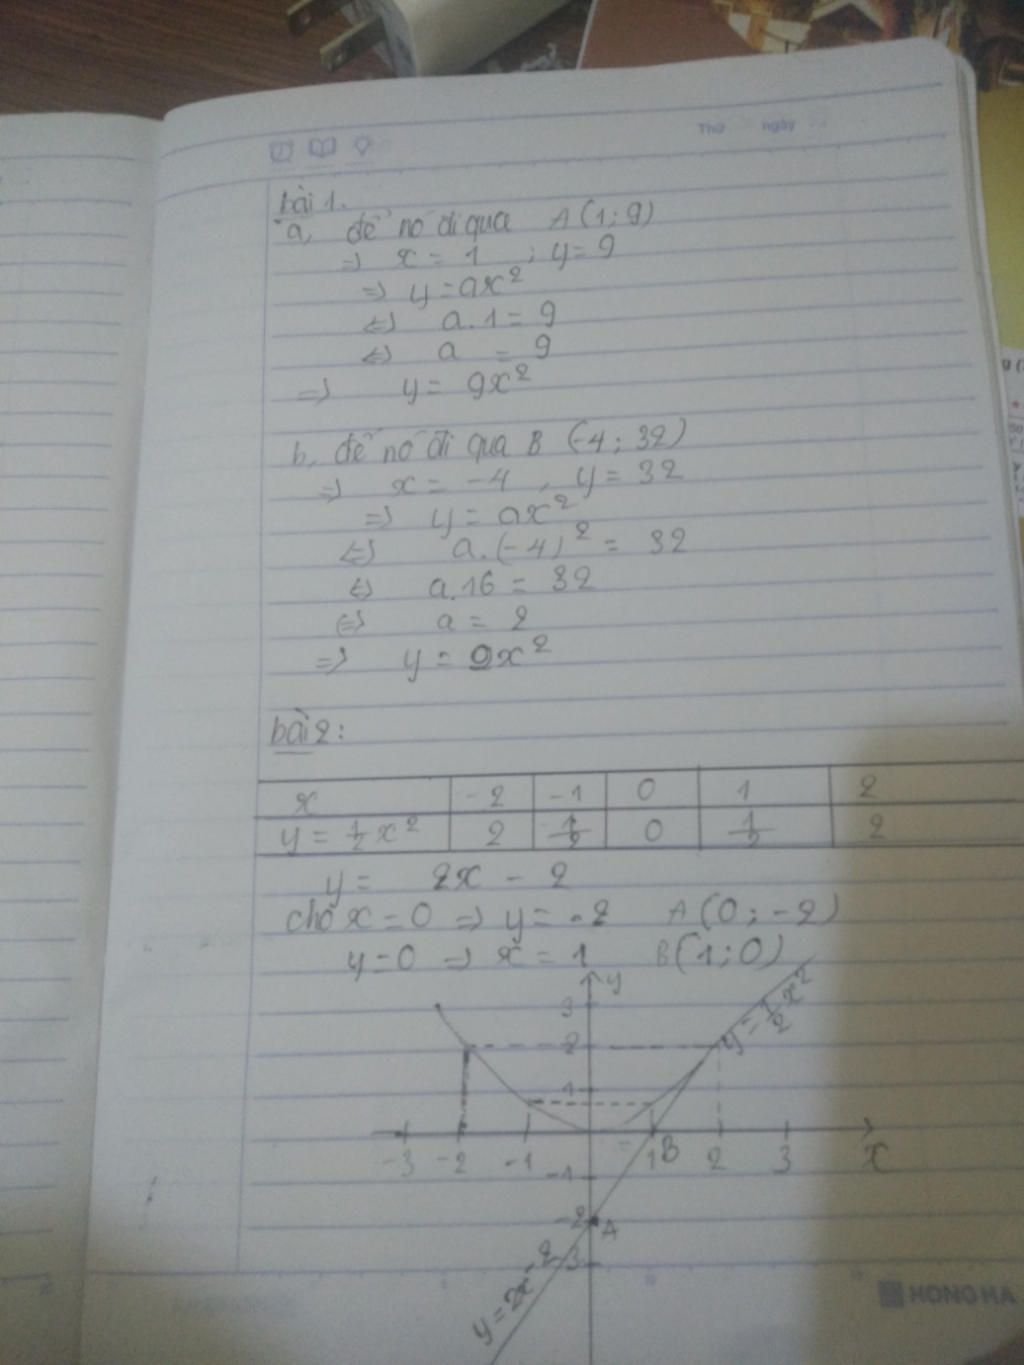 Thứ ngày
bài 1.
a, để nó đi qua A(1;9)
=> x = 1 ; y = 9
=> y = ax²
<=> a.1 = 9
<=> a = 9
=> y = 9x²
b, để nó đi qua B (-4; 32)
=> x = -4, y = 32
=> y = ax²
<=> a.(-4)² = 32
<=> a.16 = 32
<=> a = 2
=> y = 2x²
bài 2:
x -2 -1 0 1 2
y = 1/2 x² 2 1/2 0 1/2 2
y = 2x - 2
cho x = 0 => y = -2 A(0; -2)
y = 0 => x = 1 B(1;0)
y
3
2
y = 1/2 x²
1
-3 -2 -1 1 B 2 3 x
-1
-2 A
-3
y = 2x - 2
HONG HA